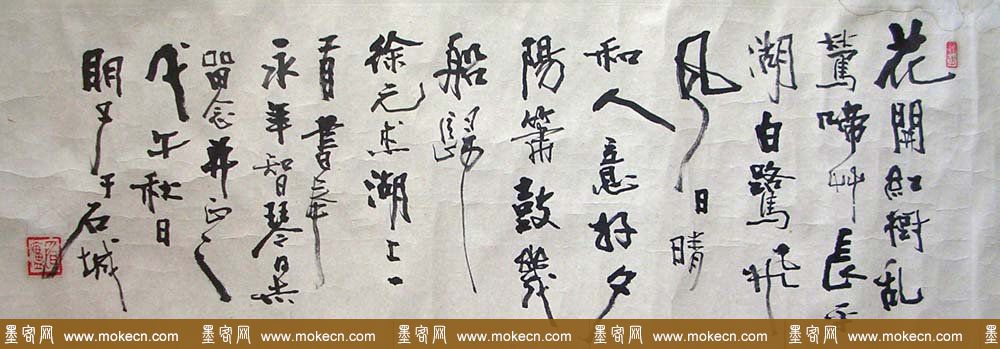 花開紅樹乱
鶯啼艸長平
湖白路鳥飛
風日晴
和人意好夕
陽簫鼓幾
船歸
徐元杰湖上一
首書奉
永年智琴
留念并正之
戊午秋日
明于石城
墨客网 www.mokecn.com 墨客网 www.mokecn.com 墨客网 www.mokecn.com 墨客网 www.mokecn.com 墨客网 www.mokecn.com 墨